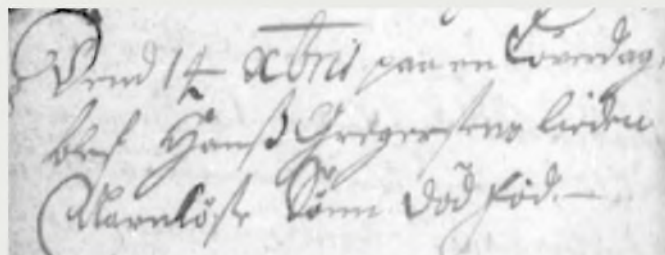 Dend 14 Xbris paa en Løverdag,
blef Hanß Gregersens liden
Navnløse Sønn død fød. —